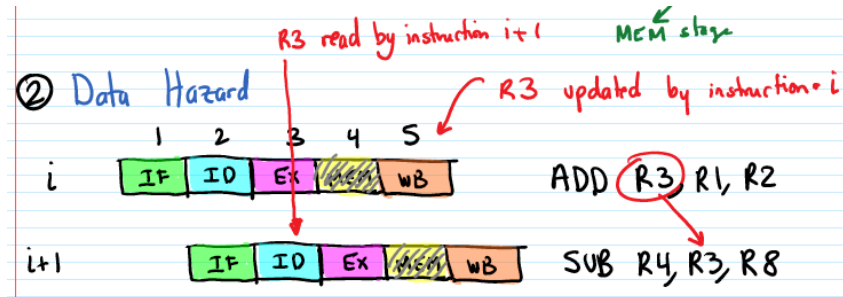 R3 read by instruction i+1
MEM stage
② Data Hazard
R3 updated by instruction i
1 2 3 4 5
i IF ID EX MEM WB ADD R3, R1, R2
i+1 IF ID EX MEM WB SUB R4, R3, R8